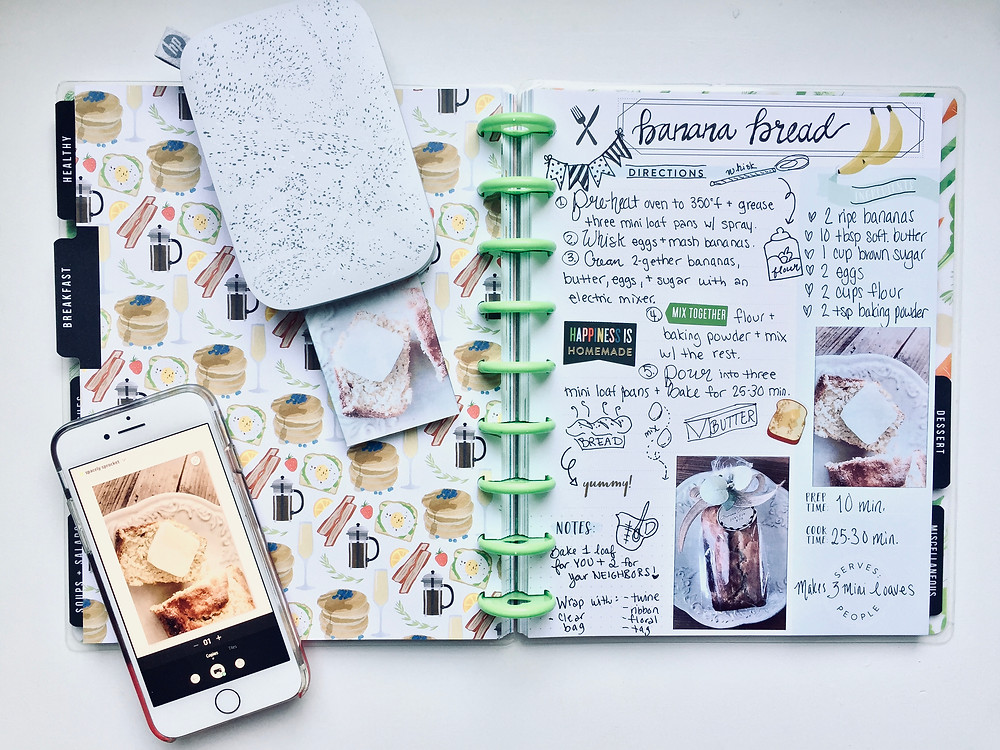 hp
HEALTHY
BREAKFAST
SOUPS + SALADS
spacely sprocket
- 01 +
Copies
Tiles
banana bread
DIRECTIONS
whisk
1 Pre-heat oven to 350°f + grease
three mini loaf pans w/ spray.
2 Whisk eggs + mash bananas.
3 Cream 2-gether bananas,
butter, eggs, + sugar with an
electric mixer.
flour
4 MIX TOGETHER flour +
baking powder + mix
w/ the rest.
HAPPINESS IS
HOMEMADE
5 Pour into three
mini loaf pans + Bake for 25-30 min.
BREAD
mix
BUTTER
yummy!
NOTES:
Bake 1 loaf
for YOU + 2 for
your NEIGHBORS!
Wrap with:
- clear
bag
- twine
- ribbon
- floral
- tag
2 ripe bananas
10 tbsp soft. butter
1 cup brown sugar
2 eggs
2 cups flour
2 tsp baking powder
PREP
TIME: 10 min.
COOK
TIME: 25-30 min.
SERVES:
Makes 3 mini loaves
PEOPLE
DESSERT
MISCELLANEOUS